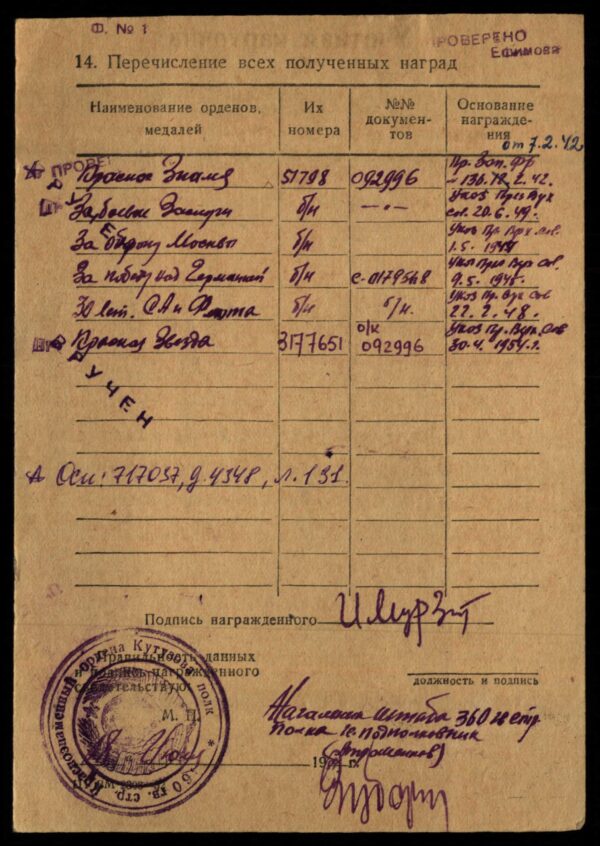 Ф. № 1
ПРОВЕРЕНО
Ефимова
14. Перечисление всех полученных наград
Наименование орденов, медалей
Их номера
№№ документов
Основание награждения
от 7.2.42
ПРОВЕ
Красное Знамя 51798 092996 Пр. Зап. Фр. 2. 42.
За боевые Заслуги б/н —"— Указ През Вух Сов. 20.6.49.
За оборону Москвы б/н Указ Пр. Врх. Сов. 1.5.
За победу над Германией б/н Указ През Вух Сов. 9.5.1945.
30 лет. СА и Флота б/н б/н. Указ Пр. Вух Сов 22.2.48.
Красная Звезда 3177651 о/к 092996 Указ Пр. Вух. Сов 30.4.1954 г.
ВРУЧЕН
Осн: 717037, д. 4348, л. 131.
Подпись награжденного
Правильность данных
и подпись награжденного
свидетельствую:
должность и подпись
М. П.
Начальник штаба 360 гв стр.
Полка гв. подполковник
19 г.
Краснознаменный ордена Кутузова полк * 360 гв. стр.